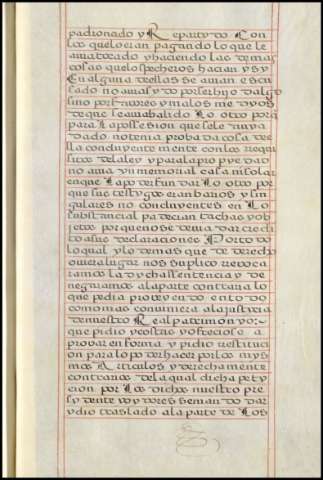 padronado y Repartydo Con
los quelo eran pagando lo que le
avia tocado y haciendo las demas
cosas que los pecheros hacian y s y
En alguna dellas se avian escu
sado no avia sydo por ser hijodalgo
sino por favores y malos medyos
de que se avia balido Lo otro por q
para La possesion que se le avia
dado no tenia probada cosa de lla
concluyente mente con los requi
sitos de la ley y para la propyedad
no avia un memorial casa ni solar
en que La poder fundar Lo otro por
que sus testygos eran barios y sin
gulares no concluyentes en Lo
substancial padecian tachas y ob
jetos por que no se devia dar credi
to a sus declaraciones Por todo
lo qual y lo demas que de derecho
oviera lugar nos suplico revoca
ramos la dycha sentencia y de
negaramos a la parte contraria lo
que pedia proveyendo en todo
como mas conviniera a la justicia
de nuestro Real patrimonyo
que pidio y costas y ofrecio se a
provar en forma y pidio restitucion
para lo poder hacer por los mys
mos Articulos y derechamente
contrarios de la qual dicha pety
cion por Los dichos nuestro pre
sydente y oydores se mando dar
y dio traslado a la parte de Los